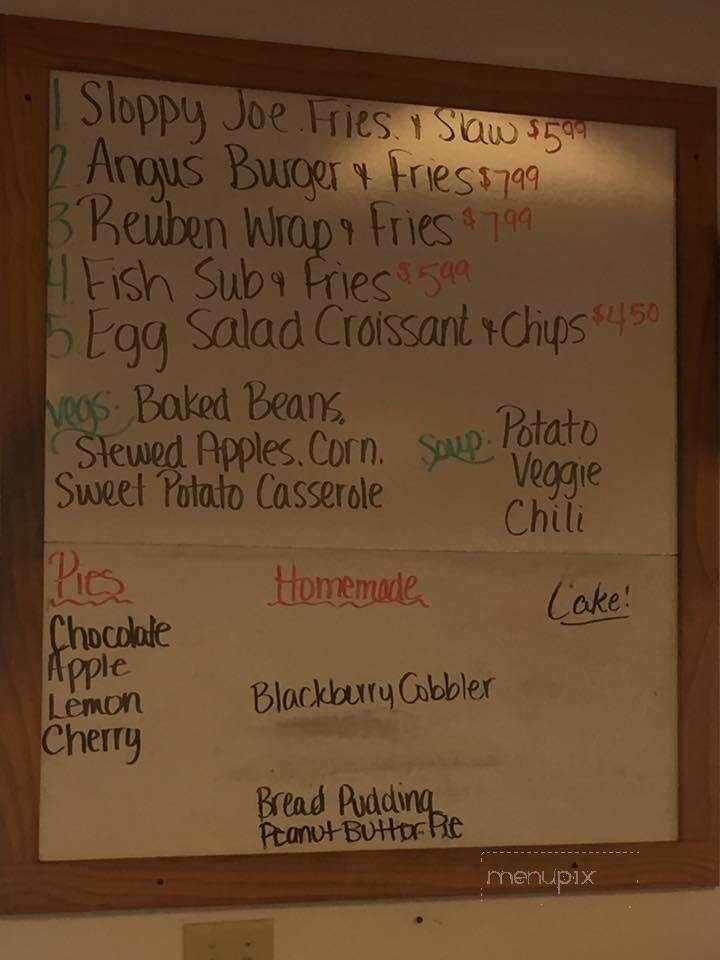 1 Sloppy Joe. Fries. & Slaw $5.99
2 Angus Burger & Fries $7.99
3 Reuben Wrap & Fries $7.99
4 Fish Sub & Fries $5.99
5 Egg Salad Croissant & Chips $4.50
Vegs: Baked Beans,
Stewed Apples. Corn.
Sweet Potato Casserole
Soup: Potato
Veggie
Chili
Pies
Chocolate
Apple
Lemon
Cherry
Homemade
Blackburry Cobbler
Bread Pudding
Peanut Butter Pie
Cake!
menupix